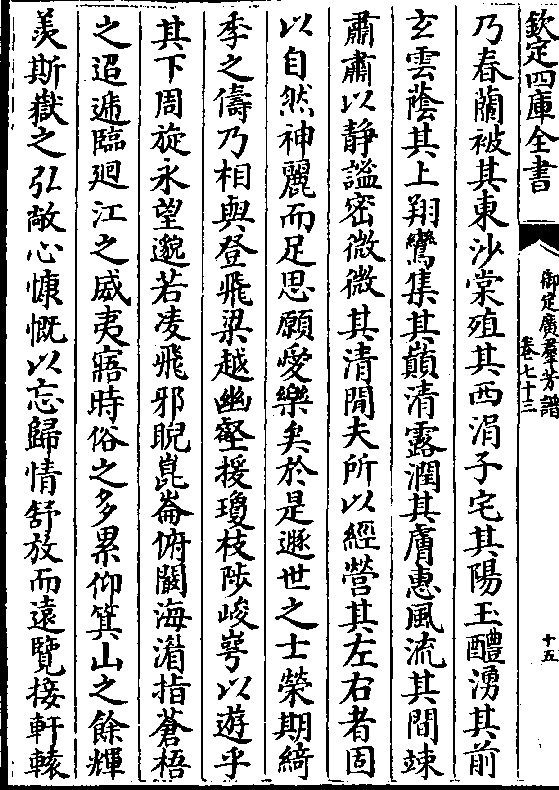 欽定四庫全書
御定廣羣芳譜
卷七十二
十五
乃春蘭被其東沙棠殖其西涓子宅其陽玉醴湧其前
玄雲蔭其上翔鸞集其巔清露潤其膚惠風流其間竦
肅肅以静謐密微微其清閒夫所以經營其左右者固
以自然神麗而足思願愛樂矣於是遯世之士榮期綺
季之儔乃相與登飛梁越幽壑援瓊枝陟峻崿以遊乎
其下周旋永望邈若凌飛邪睨崑崙俯闞海湄指蒼梧
之迢遞臨廻江之威夷寤時俗之多累仰箕山之餘輝
羨斯嶽之弘敞心慷慨以忘歸情舒放而遠覽接軒轅